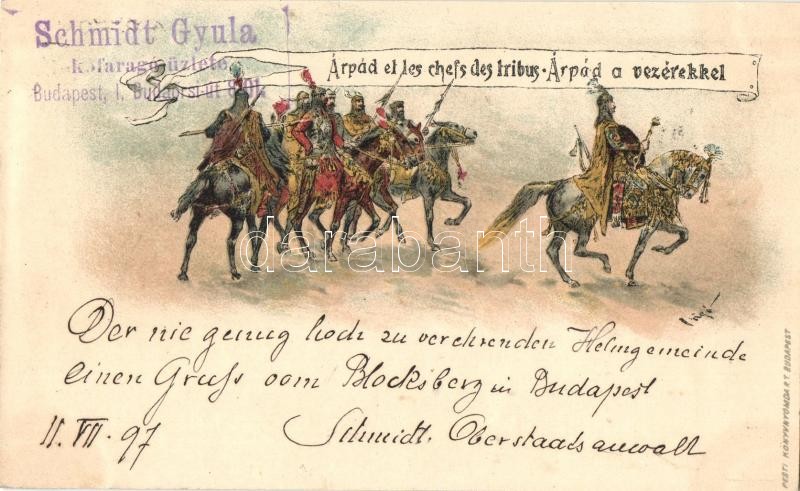 Schmidt Gyula
Kőfaragó üzlete
Budapest, I. Budaörsi-út
Árpád et les chefs des tribus · Árpád a vezérekkel
darabanth
Der nie genug hoch zu verehrenden Helmgemeinde
einen Gruss vom Blocksberg in Budapest
11. VII. 97 Schmidt. Oberstaatsanwalt
PESTI KÖNYVNYOMDA R.T. BUDAPEST